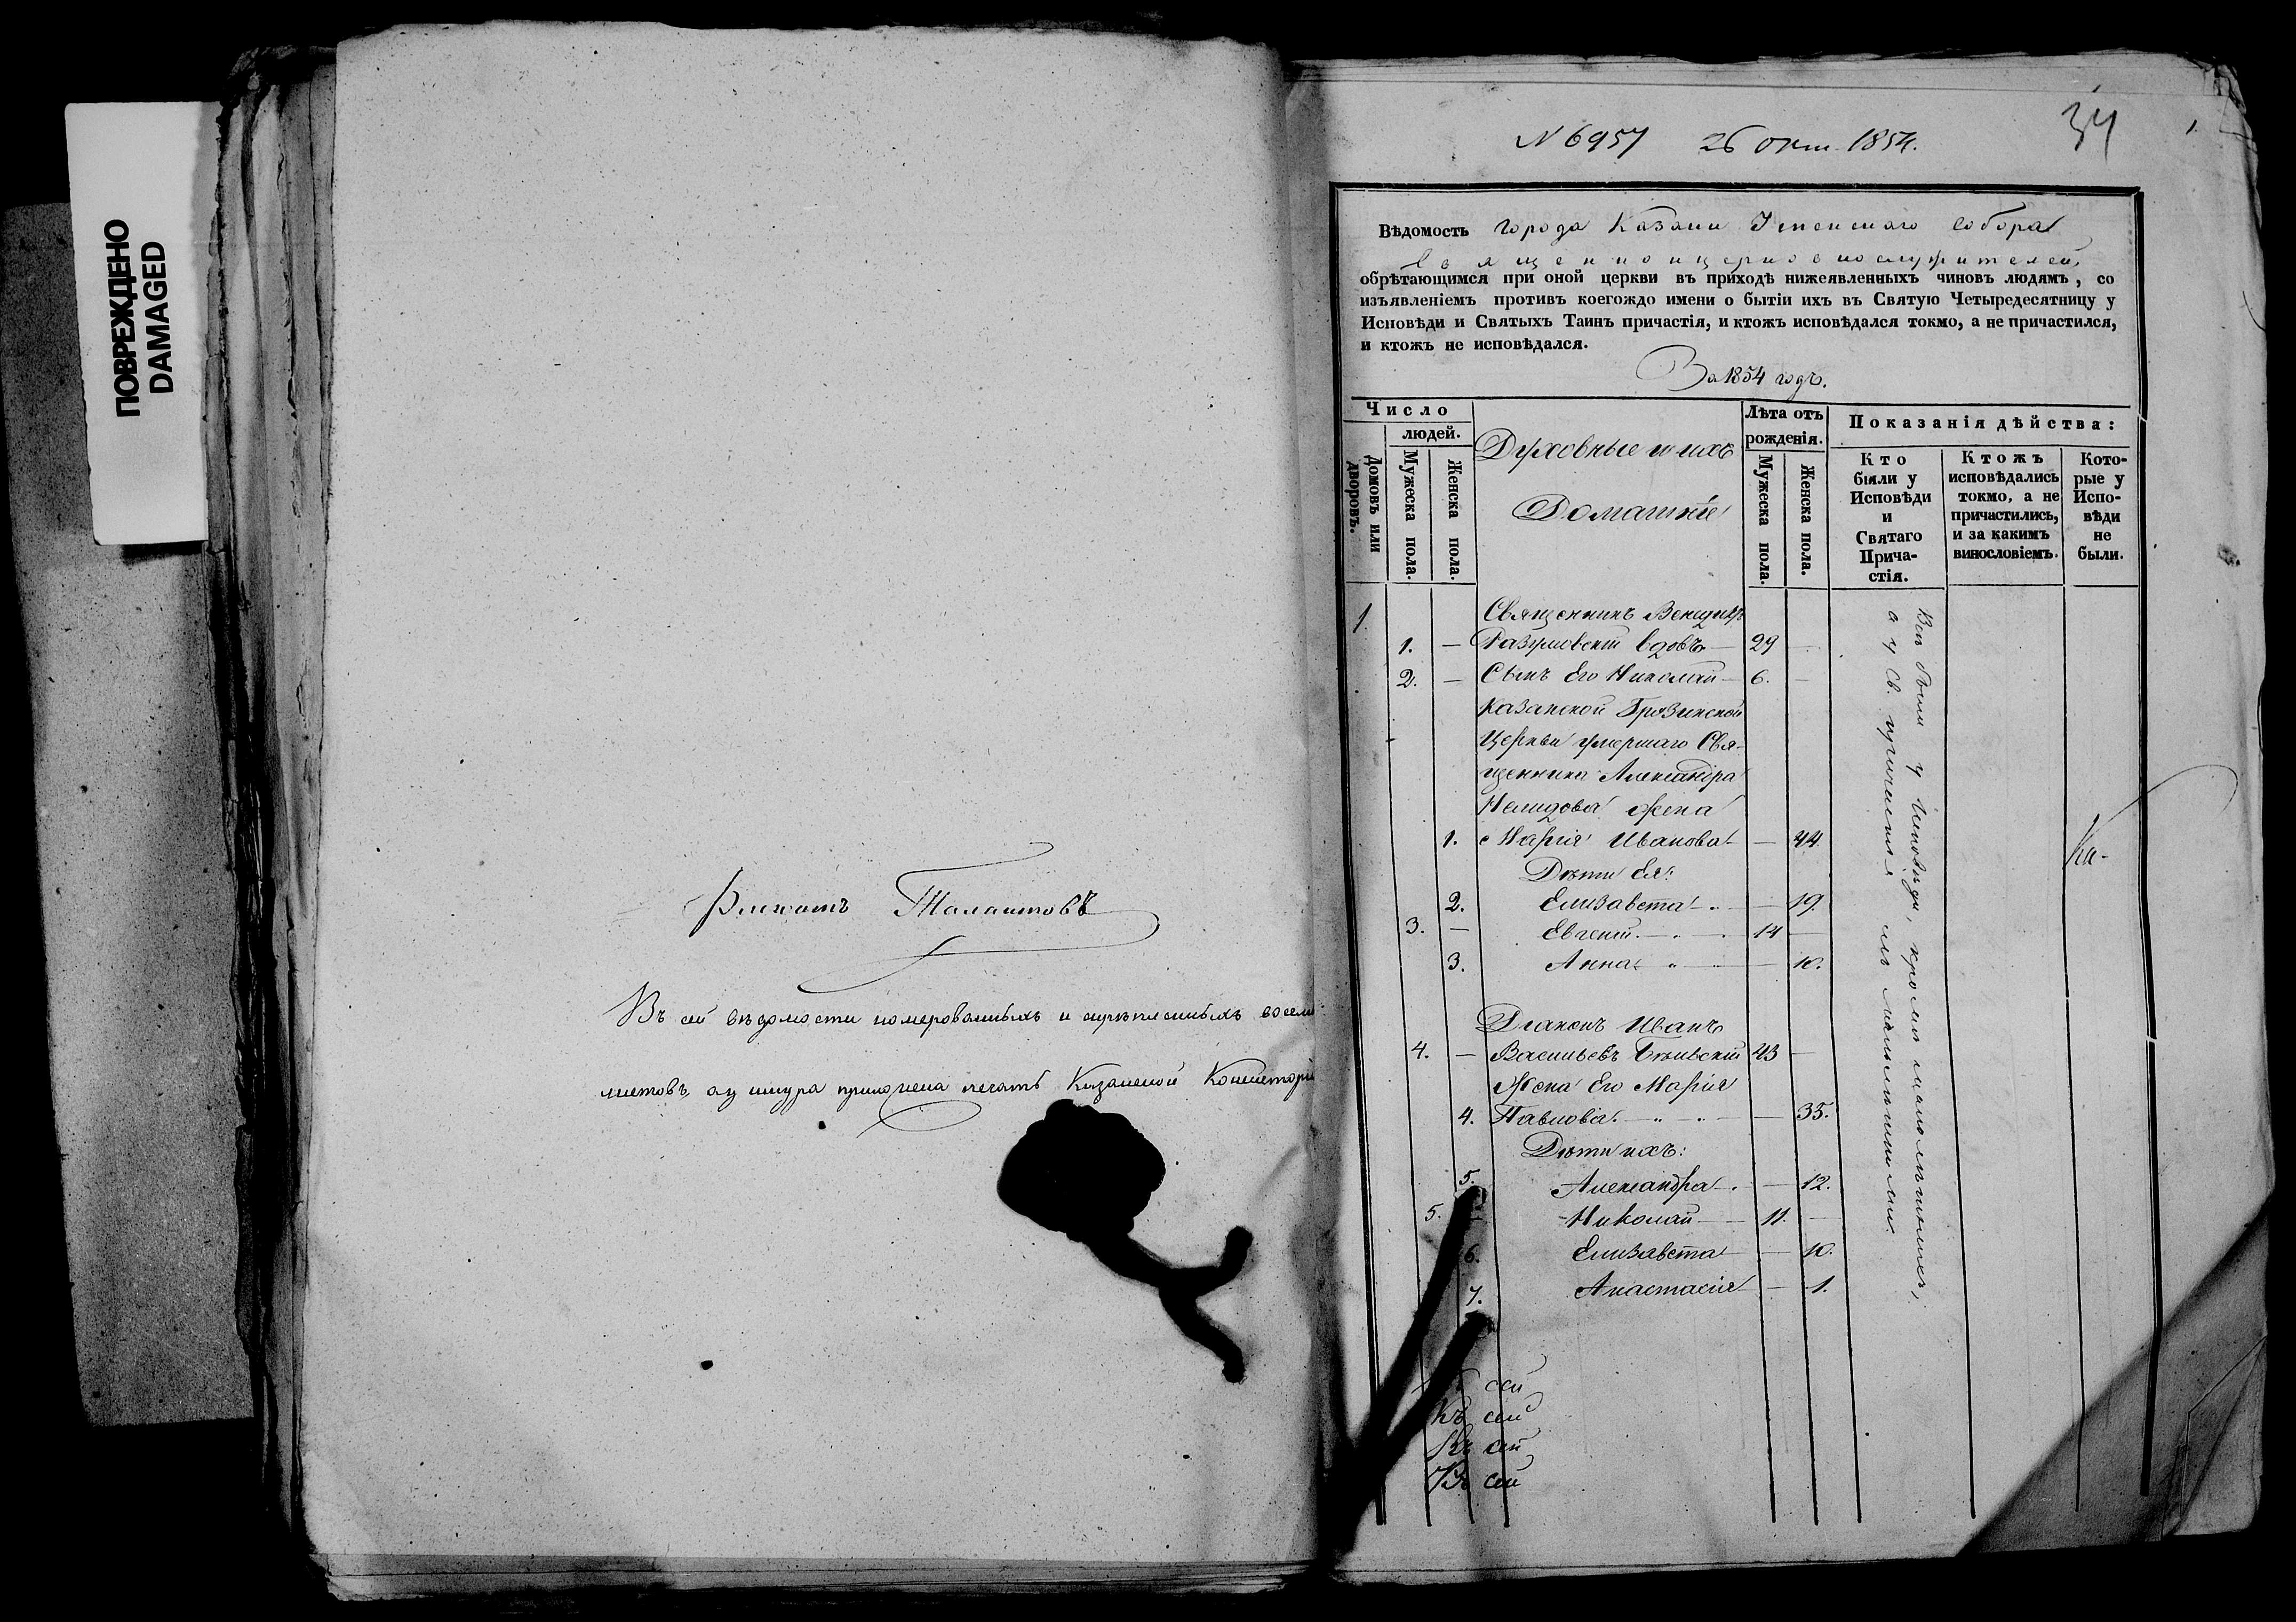 ПОВРЕЖДЕНО
DAMAGED
Талантовъ
Въ сей вѣдомости номерованныхъ и скрѣпленныхъ восемь
листовъ, у шнура приложена печать Казанской Консисторіи
34
N 6957 26 Окт. 1854.
Вѣдомость города Казани Успенскаго собора
священно и церковнослужителей,
обрѣтающимся при оной церкви въ приходѣ нижеявленныхъ чиновъ людямъ, со
изъявленіемъ противъ коегождо имени о бытіи ихъ въ Святую Четыредесятницу у
Исповѣди и Святыхъ Таинъ причастія, и ктожъ исповѣдался токмо, а не причастился,
и ктожъ не исповѣдался.
За 1854 годъ.
Число
людей.
Домовъ или дворовъ.
Мужеска пола.
Женска пола.
Духовные и ихъ
Домашніе
Лѣта отъ
рожденія.
Мужеска пола.
Женска пола.
Показанія дѣйства:
Кто
были у
Исповѣди
и
Святаго
Прича-
стія.
Ктожъ
исповѣдались
токмо, а не
причастились,
и за какимъ
винословіемъ.
Кото-
рые у
Испо-
вѣди
не
были.
1. Священникъ Венедиктъ
1. — Разумовскій вдовъ — 29 —
2. — Сынъ Его Николай — 6. —
Казанской Грузинской
Церкви умершаго Свя-
щенника Александра
Нелидова жена
1. Марія Иванова — — 44.
Дѣти Ея:
2. Елизавета — 19.
3. — Евгеній — 14 —
3. Анна — 10.
Діаконъ Иванъ
4. — Васильевъ 43 —
Жена Его Марія
4. Павлова — 35.
Дѣти ихъ:
5. Александра — 12.
5. — Николай — 11. —
6. Елизавета — 10.
7. Анастасія — 1.
Всѣ были у Исповѣди, кромѣ малолѣтнихъ,
а у Св. причастія и съ малолѣтними.
Ка-
сей
Къ сей
Къ сей
Къ сей